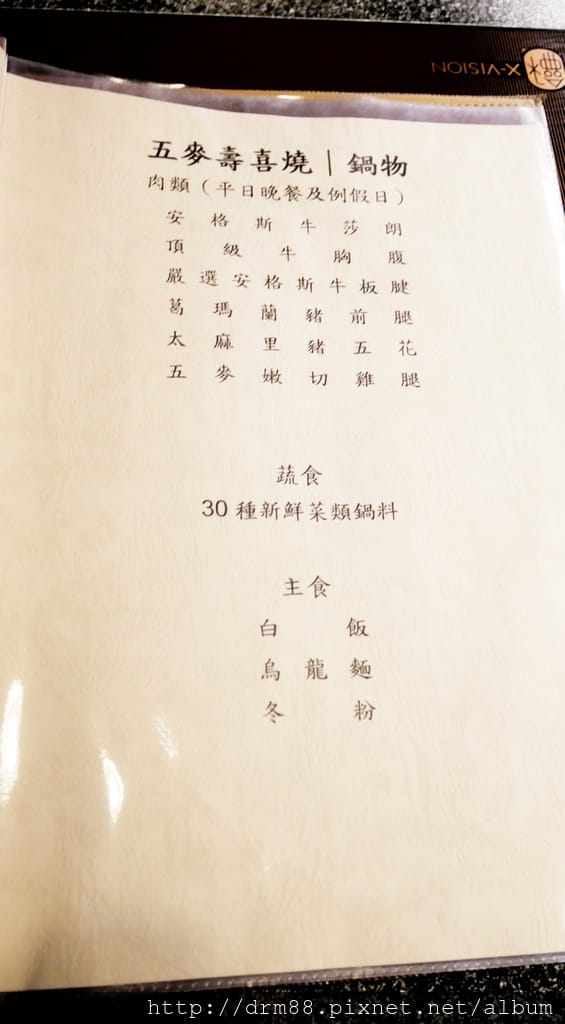 X-VISION
五麥壽喜燒｜鍋物
肉類（平日晚餐及例假日）
安格斯牛莎朗
頂級牛胸腹
嚴選安格斯牛板腱
葛瑪蘭豬前腿
太麻里豬五花
五麥嫩切雞腿
蔬食
30種新鮮菜類鍋料
主食
白飯
烏龍麵
冬粉
http://drm88.pixnet.net/album